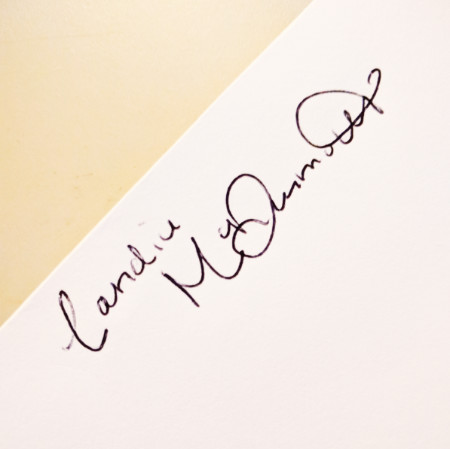 Candice
McDermott